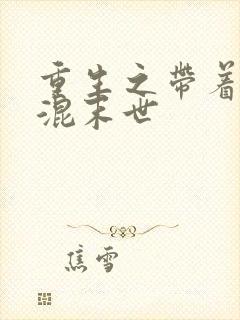 重生之带着
混末世
焦雪